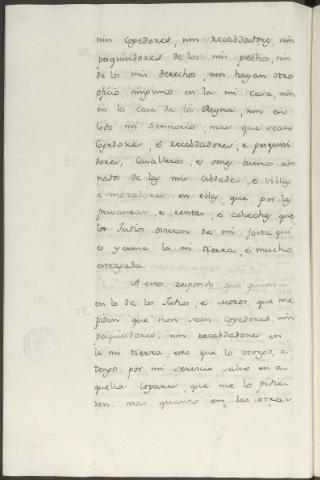 nin Cojedores, nin recabdadores, nin
pesquisidores de los mis pechos, nin
de los mis derechos, nin hayan otro
oficio ninguno en la mi casa, nin
en la casa de la Reyna, nin en
todo mi Sennorio, mas que sean
Cojedores, é recabdadores, e pesquisi
dores, Cavalleros, e omes buenos abo
nados de las mis Cibdades, é villas
é moradores en ellas, que por las
e rentas, é cohechos que
los Judios ovieron de mi fasta qui
es yerma la mi tierra, é mucha
estragada.
A esto respondo que quanto
en lo de los Judios, é Moros que me
piden que non sean Cojedores, nin
pesquisidores, nin recabdadores en
la mi tierra, esto que lo otorgo, e
tengo por mi servicio salvo en a
quellos logares que me lo pidie
ren: mas quanto en las otras